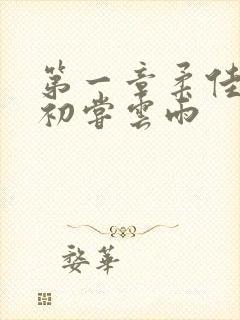 第一章柔佳
初尝雲雨
婺華